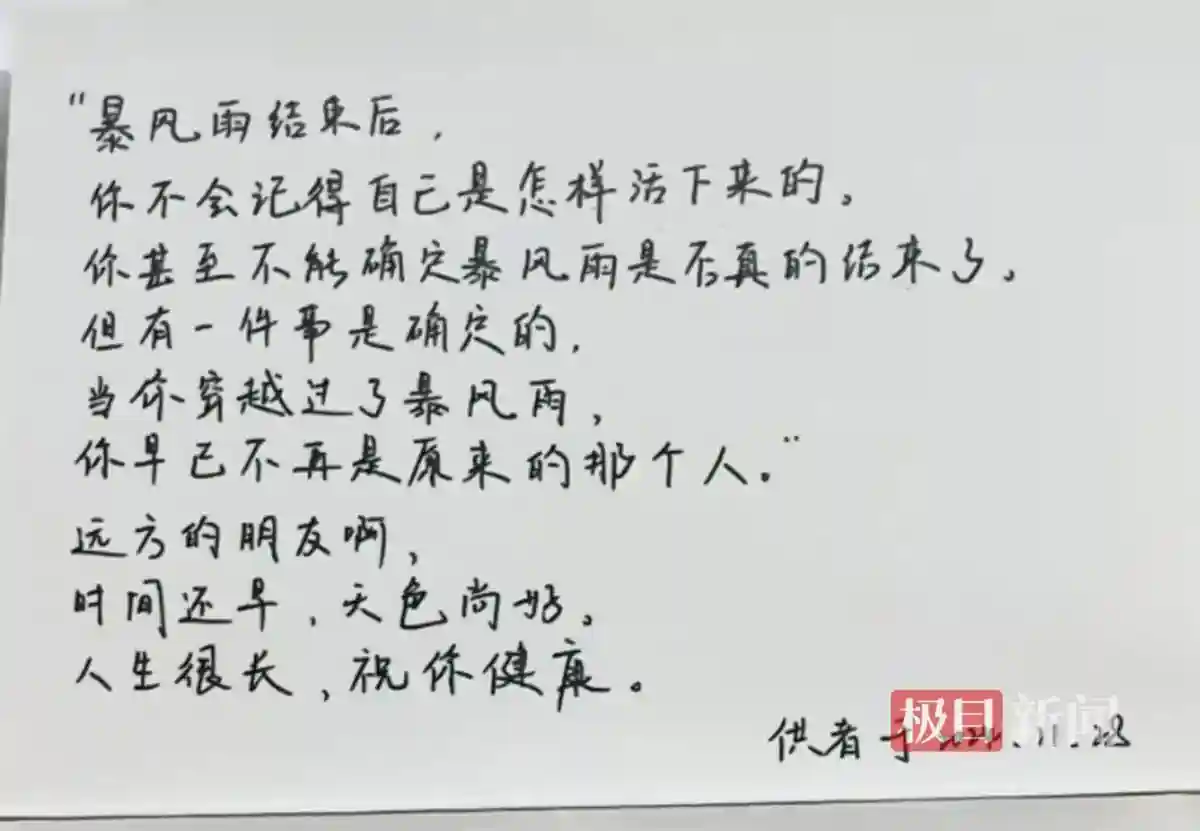 "暴风雨结束后,
你不会记得自己是怎样活下来的。
你甚至不能确定暴风雨是否真的结束了。
但有一件事是确定的,
当你穿越过了暴风雨,
你早已不再是原来的那个人。"
远方的朋友啊,
时间还早,天色尚好。
人生很长,祝你健康。
供者于 .11.28
极目新闻